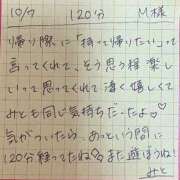 10/7 120分 M様
帰り際に「持って帰りたい」って
言ってくれて、そう思う程楽し
いって思ってくれて凄く嬉しくて
みとも同じ気持ちだったよ♡
気がついたら、あっという間に
120分経ってたね💦また遊ぼうね!
みと